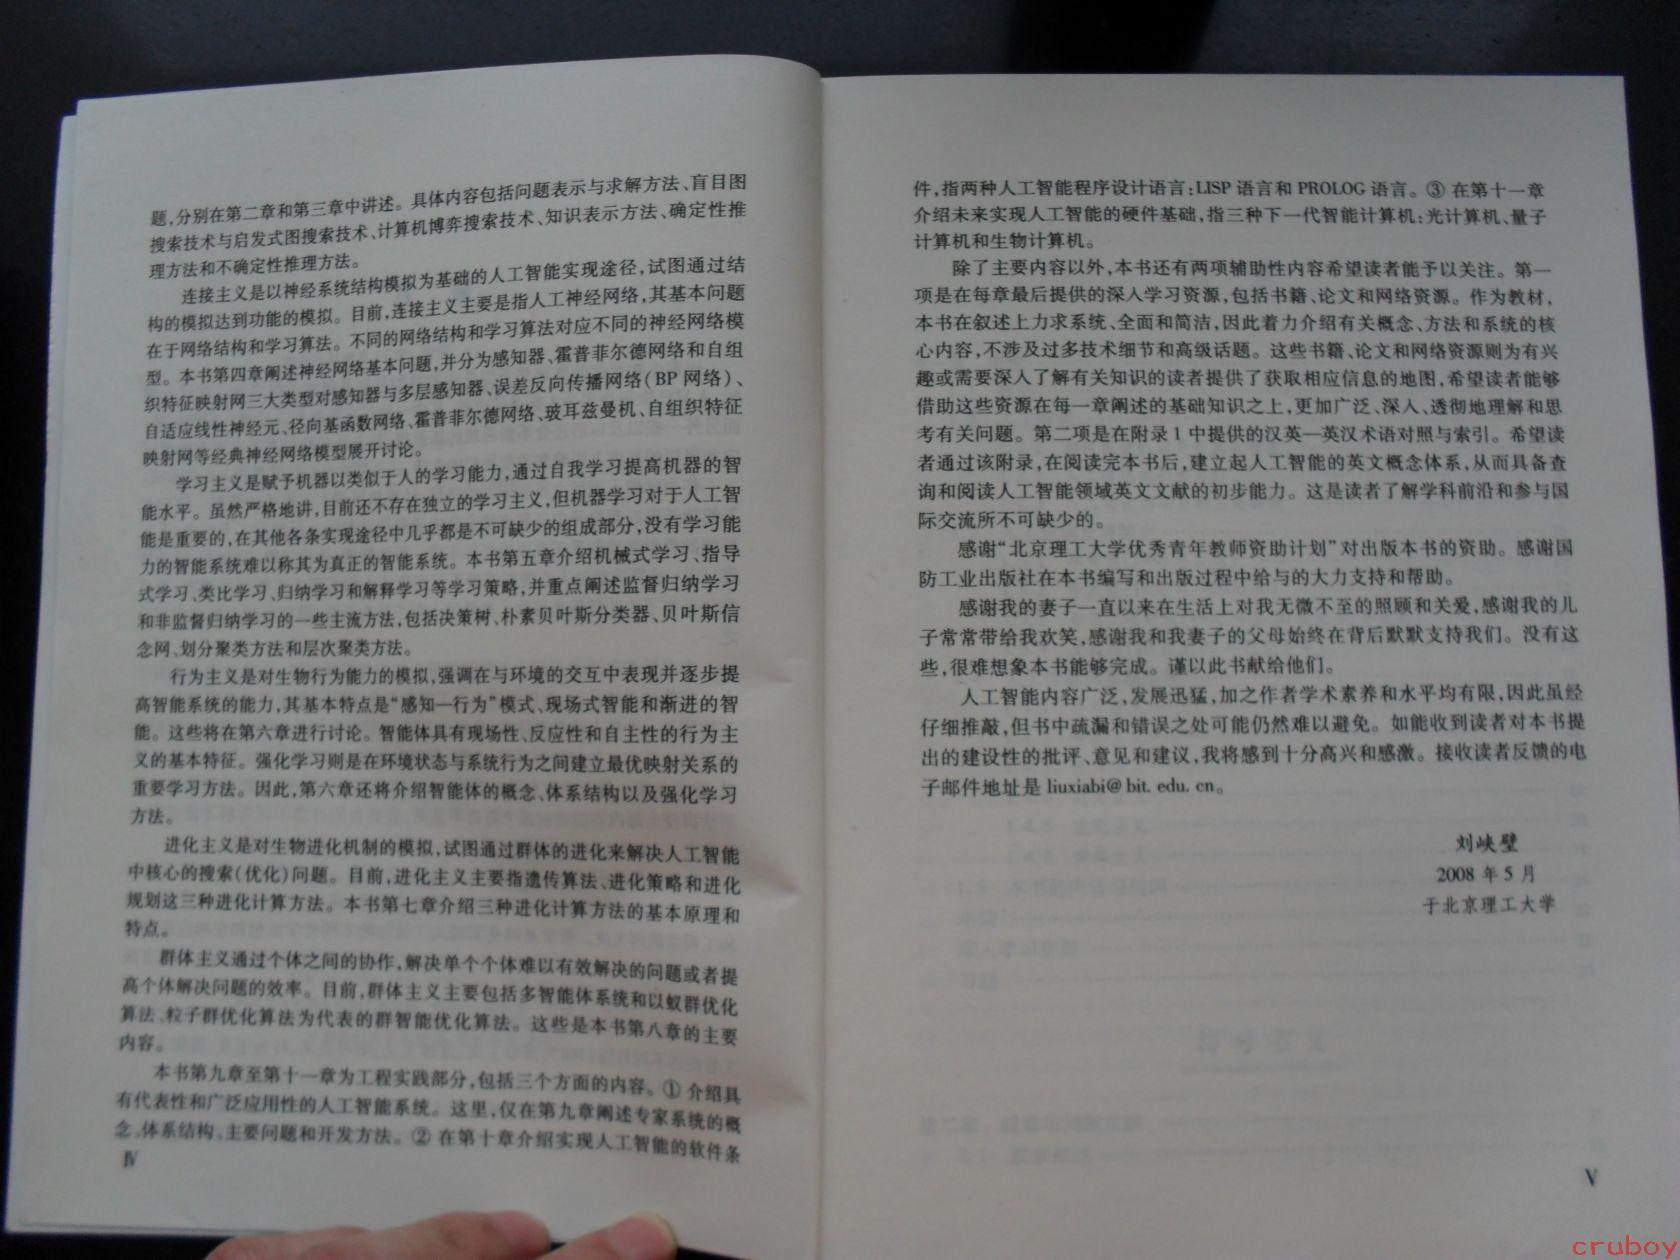 题,分别在第二章和第三章中讲述。具体内容包括问题表示与求解方法、盲目图
搜索技术与启发式图搜索技术、计算机博弈搜索技术、知识表示方法、确定性推
理方法和不确定性推理方法。
连接主义是以神经系统结构模拟为基础的人工智能实现途径,试图通过结
构的模拟达到功能的模拟。目前,连接主义主要是指人工神经网络,其基本问题
在于网络结构和学习算法。不同的网络结构和学习算法对应不同的神经网络模
型。本书第四章阐述神经网络基本问题,并分为感知器、霍普菲尔德网络和自组
织特征映射网三大类型对感知器与多层感知器、误差反向传播网络(BP 网络)、
自适应线性神经元、径向基函数网络、霍普菲尔德网络、玻耳兹曼机、自组织特征
映射网等经典神经网络模型展开讨论。
学习主义是赋予机器以类似于人的学习能力,通过自我学习提高机器的智
能水平。虽然严格地讲,目前还不存在独立的学习主义,但机器学习对于人工智
能是重要的,在其他各条实现途径中几乎都是不可缺少的组成部分,没有学习能
力的智能系统难以称其为真正的智能系统。本书第五章介绍机械式学习、指导
式学习、类比学习、归纳学习和解释学习等学习策略,并重点阐述监督归纳学习
和非监督归纳学习的一些主流方法,包括决策树、朴素贝叶斯分类器、贝叶斯信
念网、划分聚类方法和层次聚类方法。
行为主义是对生物行为能力的模拟,强调在与环境的交互中表现并逐步提
高智能系统的能力,其基本特点是“感知—行为”模式、现场式智能和渐进的智
能。这些将在第六章进行讨论。智能体具有现场性、反应性和自主性的行为主
义的基本特征。强化学习则是在环境状态与系统行为之间建立最优映射关系的
重要学习方法。因此,第六章还将介绍智能体的概念、体系结构以及强化学习
方法。
进化主义是对生物进化机制的模拟,试图通过群体的进化来解决人工智能
中核心的搜索(优化)问题。目前,进化主义主要指遗传算法、进化策略和进化
规划这三种进化计算方法。本书第七章介绍三种进化计算方法的基本原理和
特点。
群体主义通过个体之间的协作,解决单个个体难以有效解决的问题或者提
高个体解决问题的效率。目前,群体主义主要包括多智能体系统和以蚁群优化
算法、粒子群优化算法为代表的群智能优化算法。这些是本书第八章的主要
内容。
本书第九章至第十一章为工程实践部分,包括三个方面的内容。① 介绍具
有代表性和广泛应用性的人工智能系统。这里,仅在第九章阐述专家系统的概
念、体系结构、主要问题和开发方法。② 在第十章介绍实现人工智能的软件条
Ⅳ
件,指两种人工智能程序设计语言:LISP 语言和 PROLOG 语言。③ 在第十一章
介绍未来实现人工智能的硬件基础,指三种下一代智能计算机:光计算机、量子
计算机和生物计算机。
除了主要内容以外,本书还有两项辅助性内容希望读者能予以关注。第一
项是在每章最后提供的深入学习资源,包括书籍、论文和网络资源。作为教材,
本书在叙述上力求系统、全面和简洁,因此着力介绍有关概念、方法和系统的核
心内容,不涉及过多技术细节和高级话题。这些书籍、论文和网络资源则为有兴
趣或需要深入了解有关知识的读者提供了获取相应信息的地图,希望读者能够
借助这些资源在每一章阐述的基础知识之上,更加广泛、深入、透彻地理解和思
考有关问题。第二项是在附录 1 中提供的汉英—英汉术语对照与索引。希望读
者通过该附录,在阅读完本书后,建立起人工智能的英文概念体系,从而具备查
询和阅读人工智能领域英文文献的初步能力。这是读者了解学科前沿和参与国
际交流所不可缺少的。
感谢“北京理工大学优秀青年教师资助计划”对出版本书的资助。感谢国
防工业出版社在本书编写和出版过程中给与的大力支持和帮助。
感谢我的妻子一直以来在生活上对我无微不至的照顾和关爱,感谢我的儿
子常常带给我欢笑,感谢我和我妻子的父母始终在背后默默支持我们。没有这
些,很难想象本书能够完成。谨以此书献给他们。
人工智能内容广泛,发展迅猛,加之作者学术素养和水平均有限,因此虽经
仔细推敲,但书中疏漏和错误之处可能仍然难以避免。如能收到读者对本书提
出的建设性的批评、意见和建议,我将感到十分高兴和感激。接收读者反馈的电
子邮件地址是 liuxiabi@bit.edu.cn。
刘峡壁
2008 年 5 月
于北京理工大学
Ⅴ
cruboy